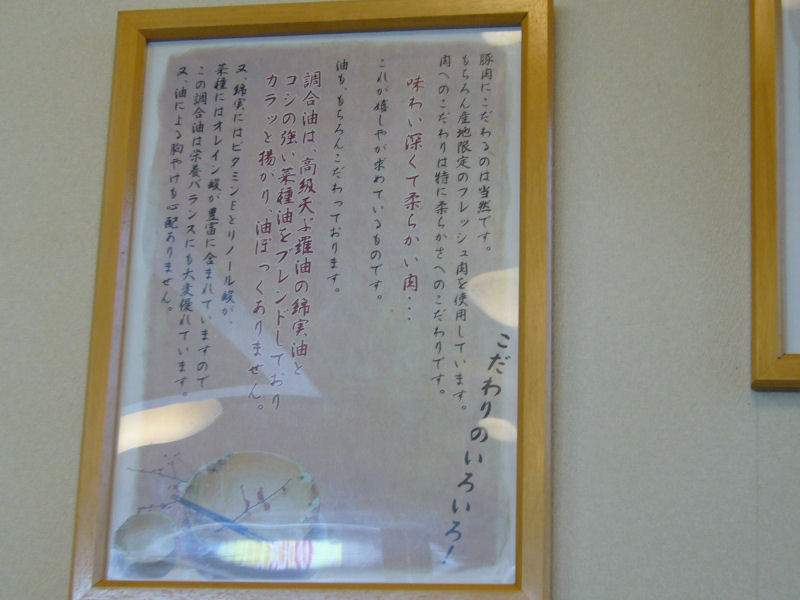 こだわりのいろいろ！
豚肉にこだわるのは当然です。
もちろん産地限定のフレッシュ肉を使用しています。
肉へのこだわりは特に柔らかさへのこだわりです。
味わい深くて柔らかい肉…
これが嬉しやが求めているものです。
油も、もちろんこだわっております。
調合油は、高級天ぷ羅油の綿実油と
コシの強い菜種油をブレンドしており
カラッと揚がり、油ぽっくありません。
又、綿実にはビタミンEとリノール酸が、
菜種にはオレイン酸が豊富に含まれていますので
この調合油は栄養バランスにも大変優れています。
又、油による胸やけも心配ありません。